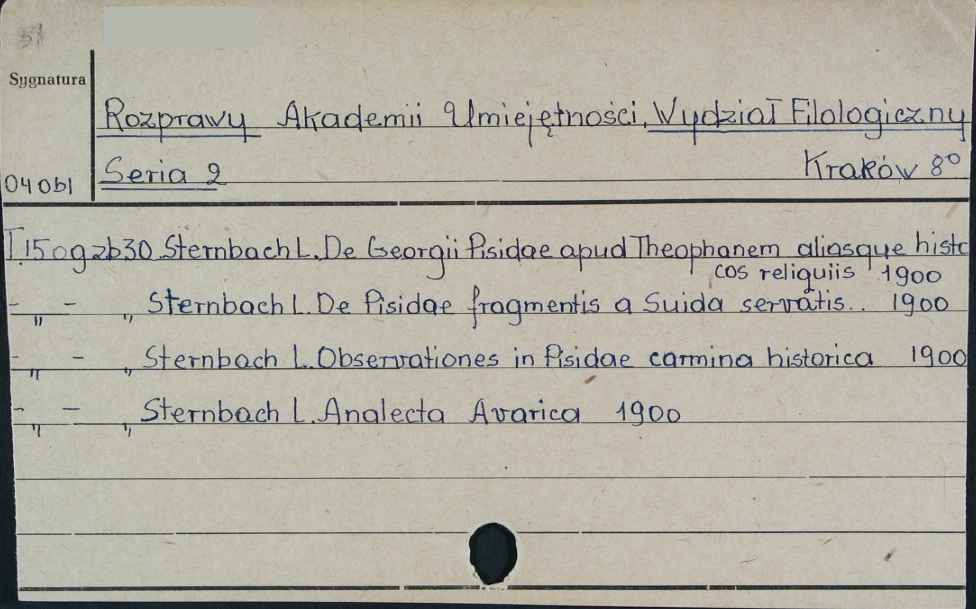 Sygnatura
Rozprawy Akademii Umiejętności. Wydział Filologiczny
Seria 2 Kraków 8°
04 obl
T.15 og zb30 Sternbach L. De Georgii Pisidae apud Theophanem aliosque histo
cos reliquiis 1900
- „ - „ Sternbach L. De Pisidae fragmentis a Suida servatis.. 1900
- „ - „ Sternbach L. Observationes in Pisidae carmina historica 1900
- „ - „ Sternbach L. Analecta Avarica 1900